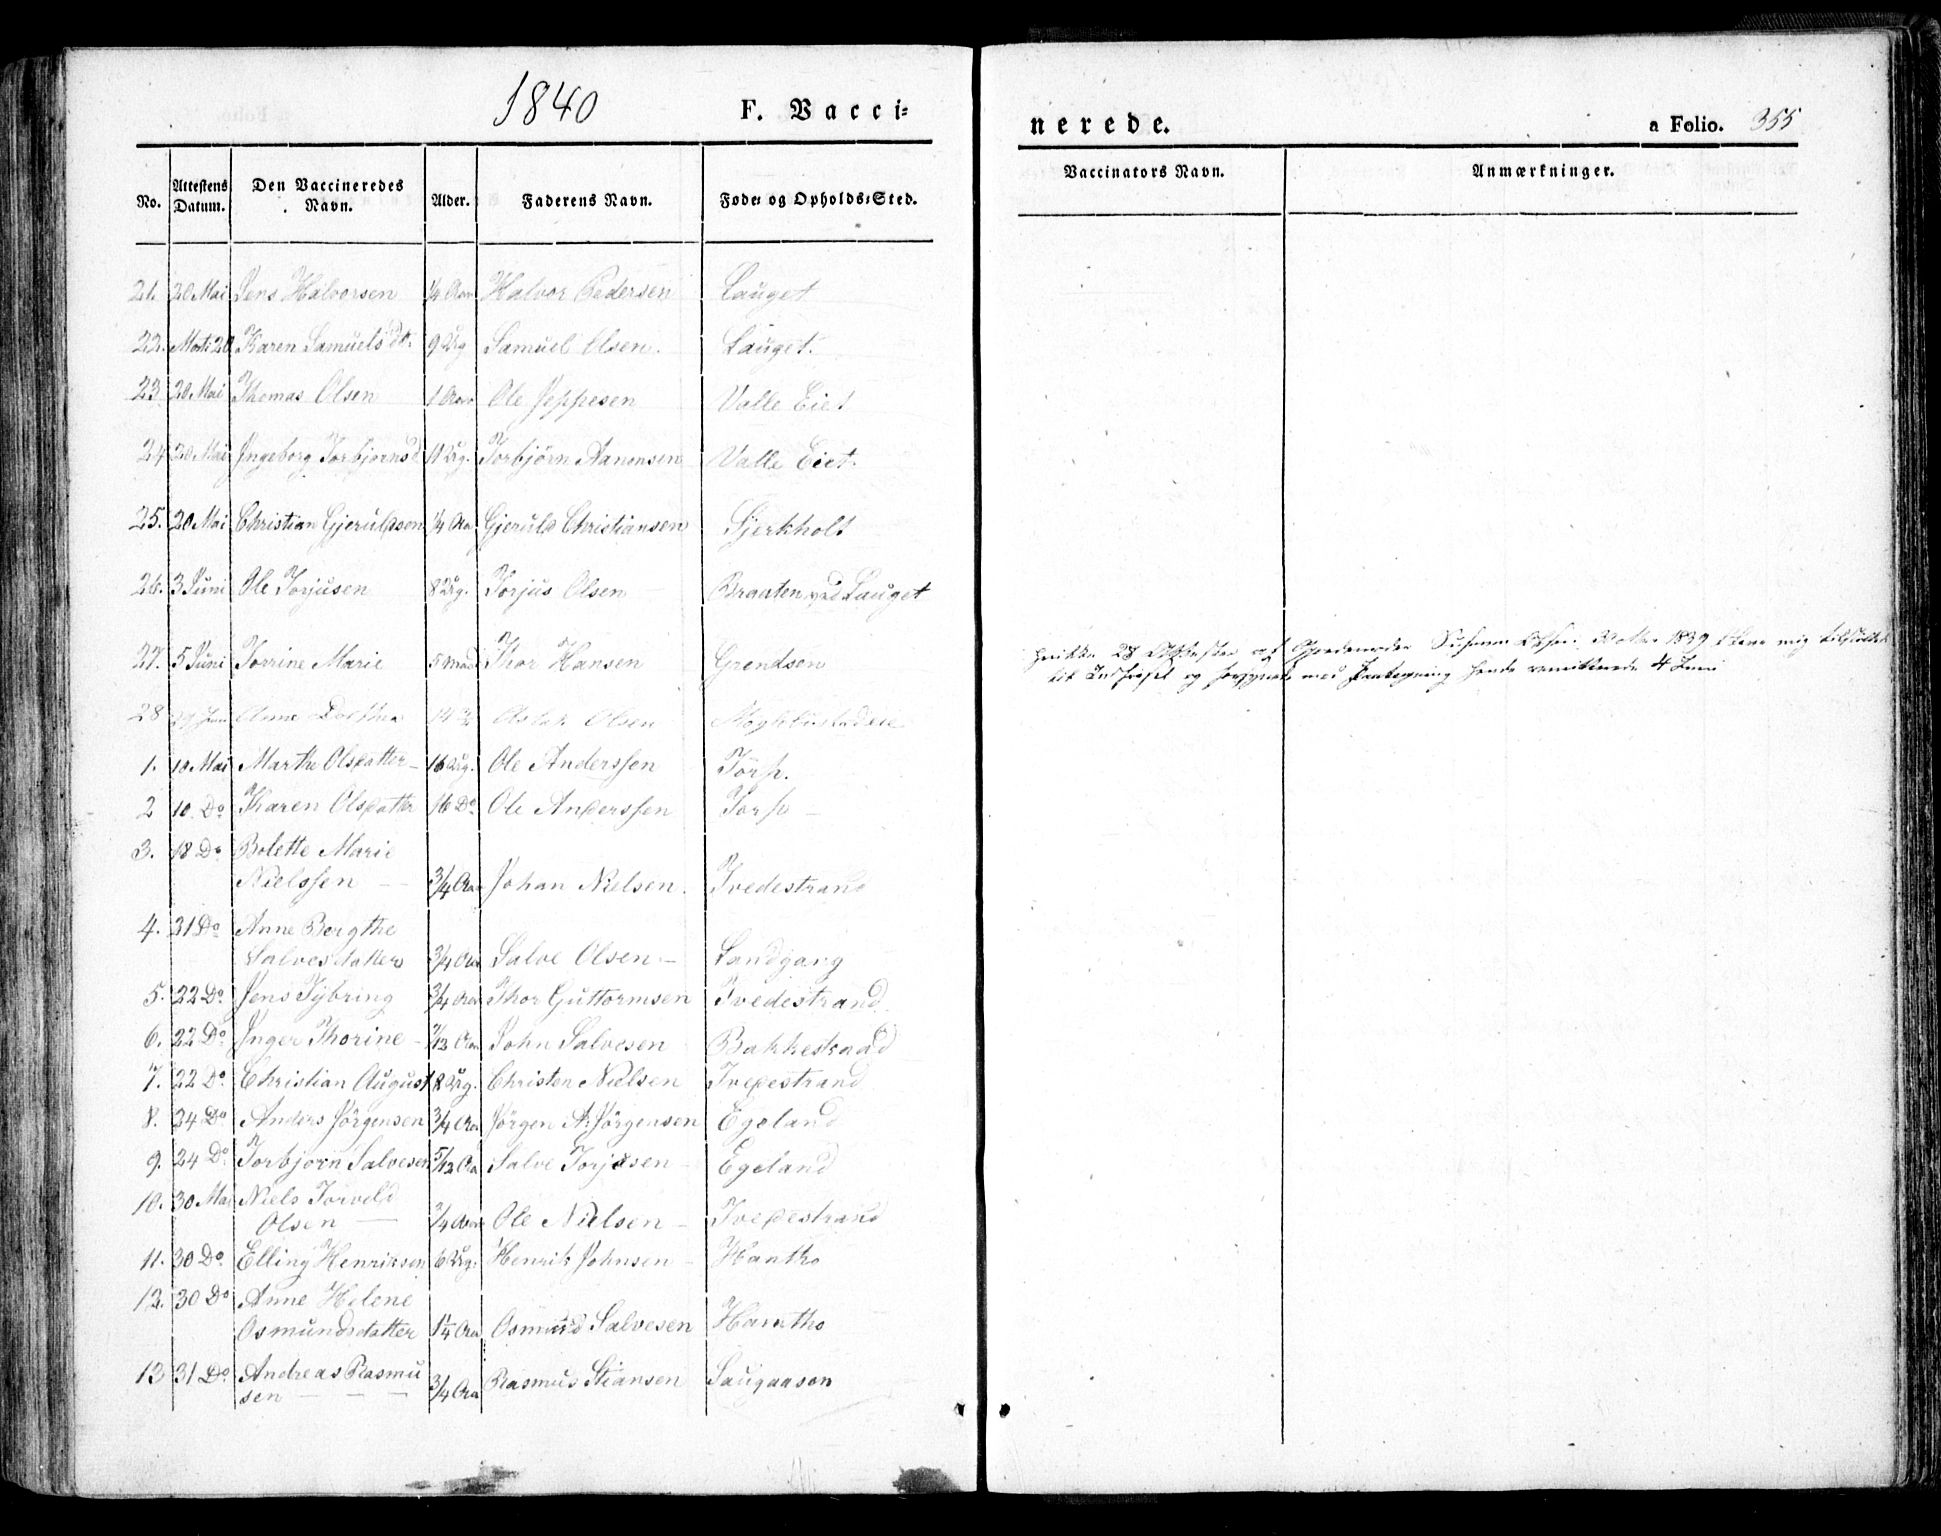 1840
F. Vacci-
nerede.
a Folio. 355
No. Attestens Datum. Den Vaccineredes Navn. Alder. Faderens Navn. Føde- og Opholds-Sted.
Vaccinators Navn. Anmærkninger.
21. 20 Mai Jens Halvorsen 1/4 Aar Halvor Pedersen Lauget
22. 20 Karen Samuelsdt. 9 Ug Samuel Olsen. Lauget.
23 20 Mai Thomas Olsen 1 Aar Ole Jeppesen Valle Eiet
24 20 Mai Ingeborg Torbjørnsd 11 Ug. Torbjørn Aanonsen Valle Eiet.
25. 20 Mai Christian Gjeruldsen 1/4 Aar Gjeruld Christiansen Sjerkholt
26. 3 Juni Ole Torjusen 8 Ug. Torjus Olsen Braaten ved Lauget
27. 5 Juni Torrine Marie 5 Maad Thor Hansen Grendsen
28 Juni Anne Dorthea Olsen
1. 10 Mai Marthe Olsdatter 16 Ug. Ole Anderssen Torp.
2 10 Do Karen Olsdatter 16 Do Ole Anderssen Torp
3. 18 Do Bolette Marie
Nielssen 3/4 Aar Johan Nielsen. Tvedestrand
4. 21 Do Anne Bergthe
Salvesdatter 3/4 Aar Salve Olsen Landgang
5. 22 Do Jens Tybring 3/4 Aar Thor Guttormsen Tvedestrand
6. 22 Do Inger Thorine Aar John Salvesen Bakkeskaad
7. 22 Do Christian August 18 Ug. Christen Nielsen Tvedestrand
8. 24 Do Anders Jörgensen 3/4 Aar Jörgen A. Jörgensen Egeland
9. 24 Do Torbjörn Salvesen 5/12 Aa Salve Torjusen Egeland
10. 30 Mai Niels Torveld
Olsen 3/4 Aar Ole Nielsen Tvedestrand
11. 30 Do Elling Henriksen 6 Ug. Henrik Johnsen Hantho
12. 30 Do Anne Helene
Osmundsdatter 1 1/4 Aar Osmund Salvesen Hantho
13 31 Do Andreas Rasmu
sen 3/4 Aar Rasmus Stiansen Laugaasen
28 af 1839 mig
og med 4 Juni